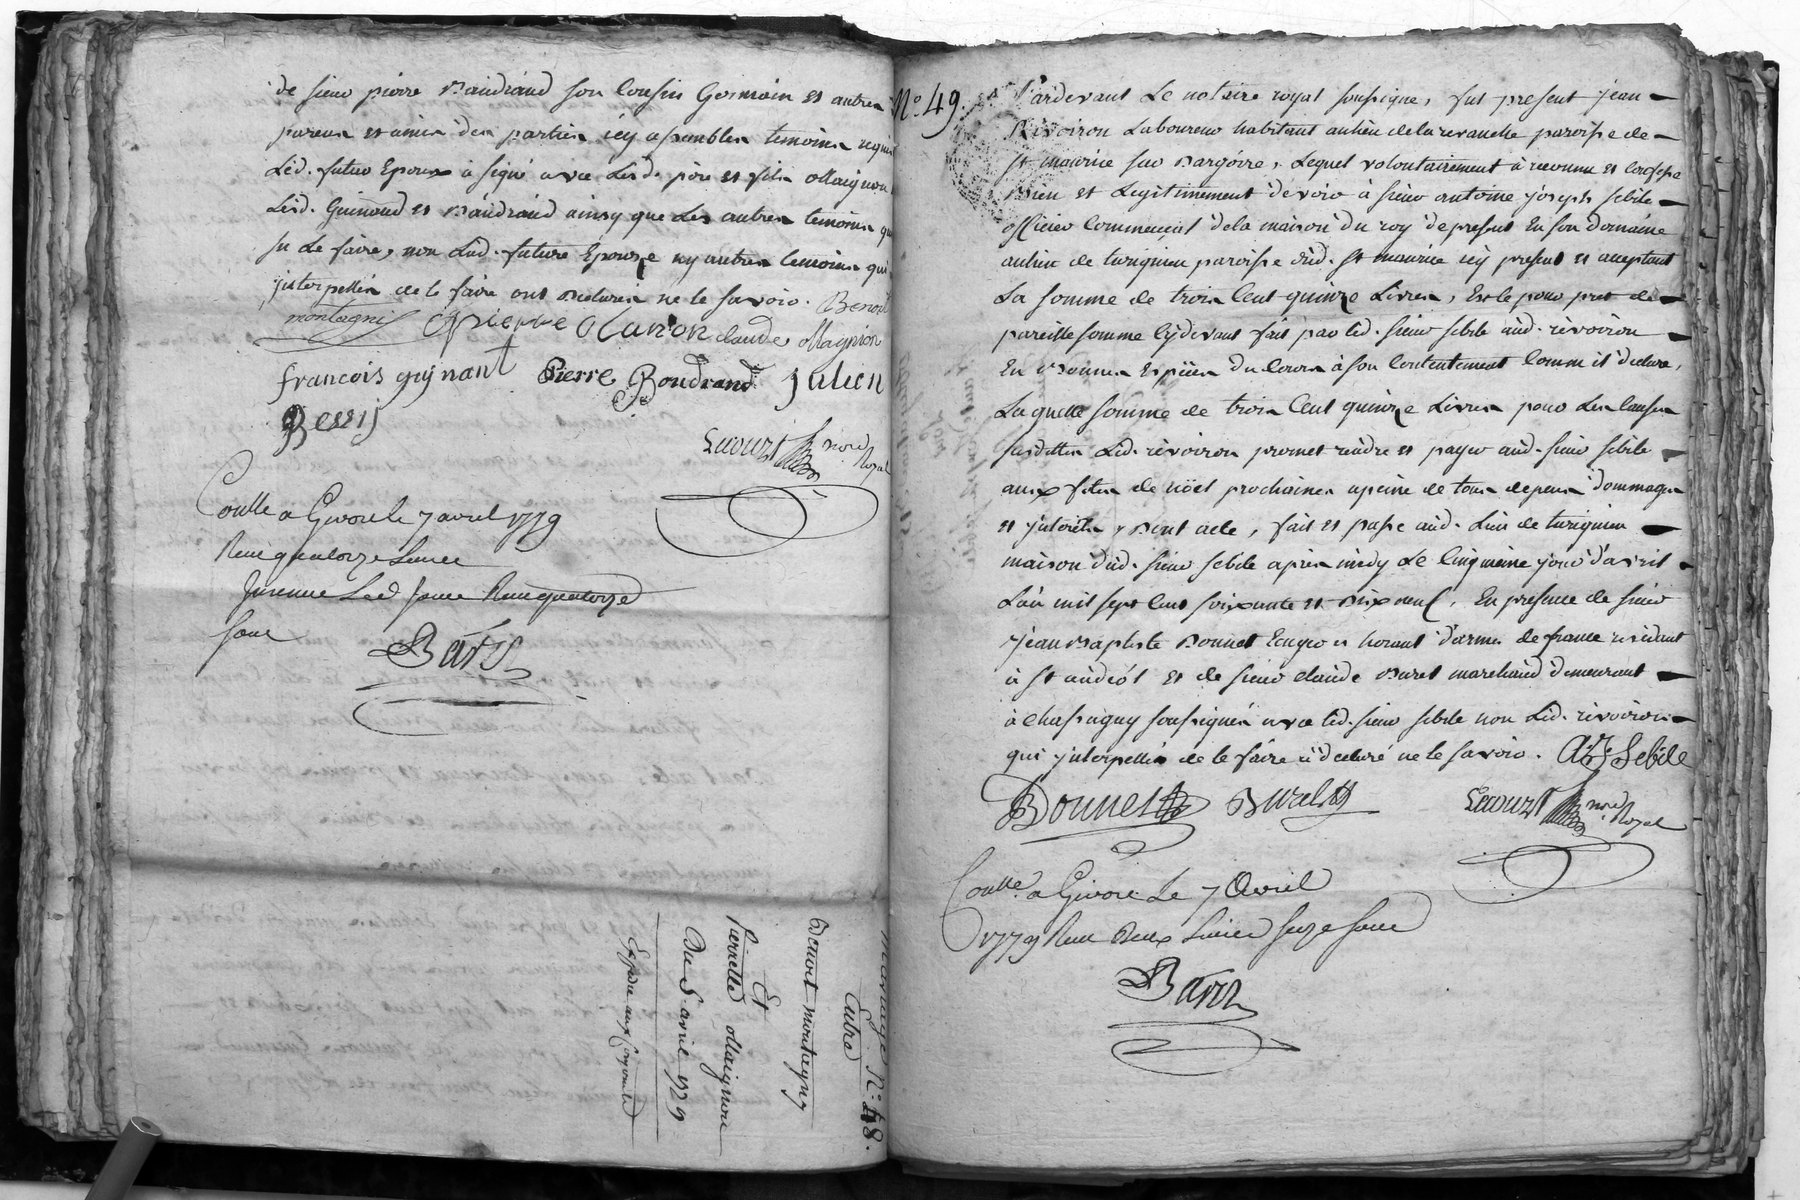 de sieur pierre Baudrand son Cousin Germain et autres
parens et amis des parties icy assemblés temoins requis
Led. futur Epoux a signé avec Lesd. père et fils ollaignon
Lesd. Guinand et Baudrand ainsy que Les autres temoins qui
su Le faire, non Lad. future Epouze ny autres temoins qui
interpellés de le faire ont declarés ne le savoir. Benoit
montagni pierre claude ollagnion
francois guinant Pierre Boudrand julien
Bessy
Lecourt nore Royal
Conllé a Givors le 7 avril 1779
Reçu quatorze Livres
Barry
mariage N.o 48.
Entre
Benoit montagny
Et
Pierrette ollaignon
Du 5 avril 1779
N.o 49. Pardevant Le notaire royal soussigné, fut present jean
Rivoiron Laboureur habitant au lieu de la revanche paroisse de
St maurice sur Dargoire, Lequel volontairement à reconnu et confessé
Bien et Legitimement devoir à sieur antoine joseph sebile
officier Commençal de la maison du roy de present En son domaine
au lieu de turignieu paroisse dud. St maurice icy present et acceptant
La somme de trois Cent quinze Livres, Est le pour pret de
pareille somme cy devant fait par led. sieur sebile aud. rivoiron
En Bonnes Espèces du Cours à son Contentement Comme il declare,
Laquelle somme de trois Cent quinze Livres pour Les causes
susdittes Led. rivoiron promet rendre et payer aud. sieur sebile
aux fetes de nöel prochaines a peine de tous depens dommages
et interets, Dont acte, fait et passé aud. Lieu de turignieu
maison dud. sieur sebile après midy Le Cinquieme jour d'avril
L'an mil sept Cent soixante et Dix neuf, En presence de sieur
jean Baptiste Bonnet Ecuyer herant d'armes de france residant
à St andéol et de sieur claude Buret marchand demeurant
à Chassagny soussignés avec led. sieur sebile non Led. rivoiron
qui interpellés de le faire a declaré ne le savoir. A J Sebile
Bonnet Buret Lecourt nore Royal
Conllé a Givors Le 7 Avril
1779 Reçu Deux Livres seize sous
Barry